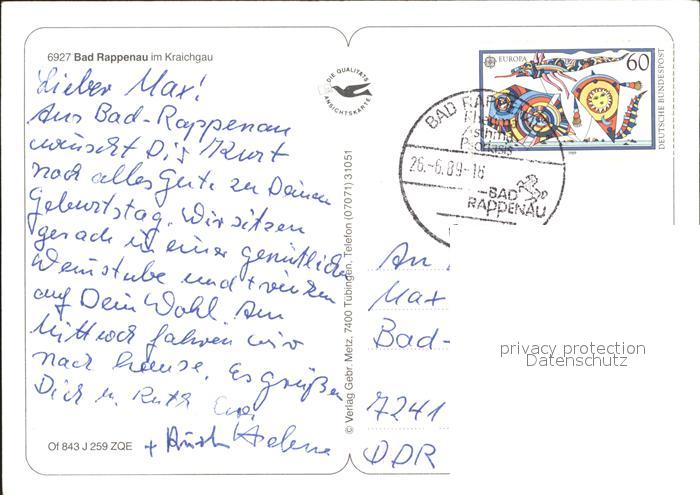 6927 Bad Rappenau im Kraichgau
Lieber Max!
Aus Bad-Rappenau
wünscht Dir Kurt
noch alles Gute zu Deinem
Geburtstag. Wir sitzen
gerade in einer gemütlichen
Weinstube und trinken
auf Dein Wohl. Am
Mittwoch fahren wir
nach hause. Es grüßen
Dich u. Ruth Eure
+ Helene
Of 843 J 259 ZQE
DIE QUALITÄTS
ANSICHTSKARTE
© Verlag Gebr. Metz, 7400 Tübingen, Telefon (07071) 31051
EUROPA
60
DEUTSCHE BUNDESPOST
1989
BAD RAPPENAU
Rheuma
Asthma
Psoriasis
26.-6.89-16
BAD
RAPPENAU
An
Max
Bad-
7241
DDR
privacy protection
Datenschutz